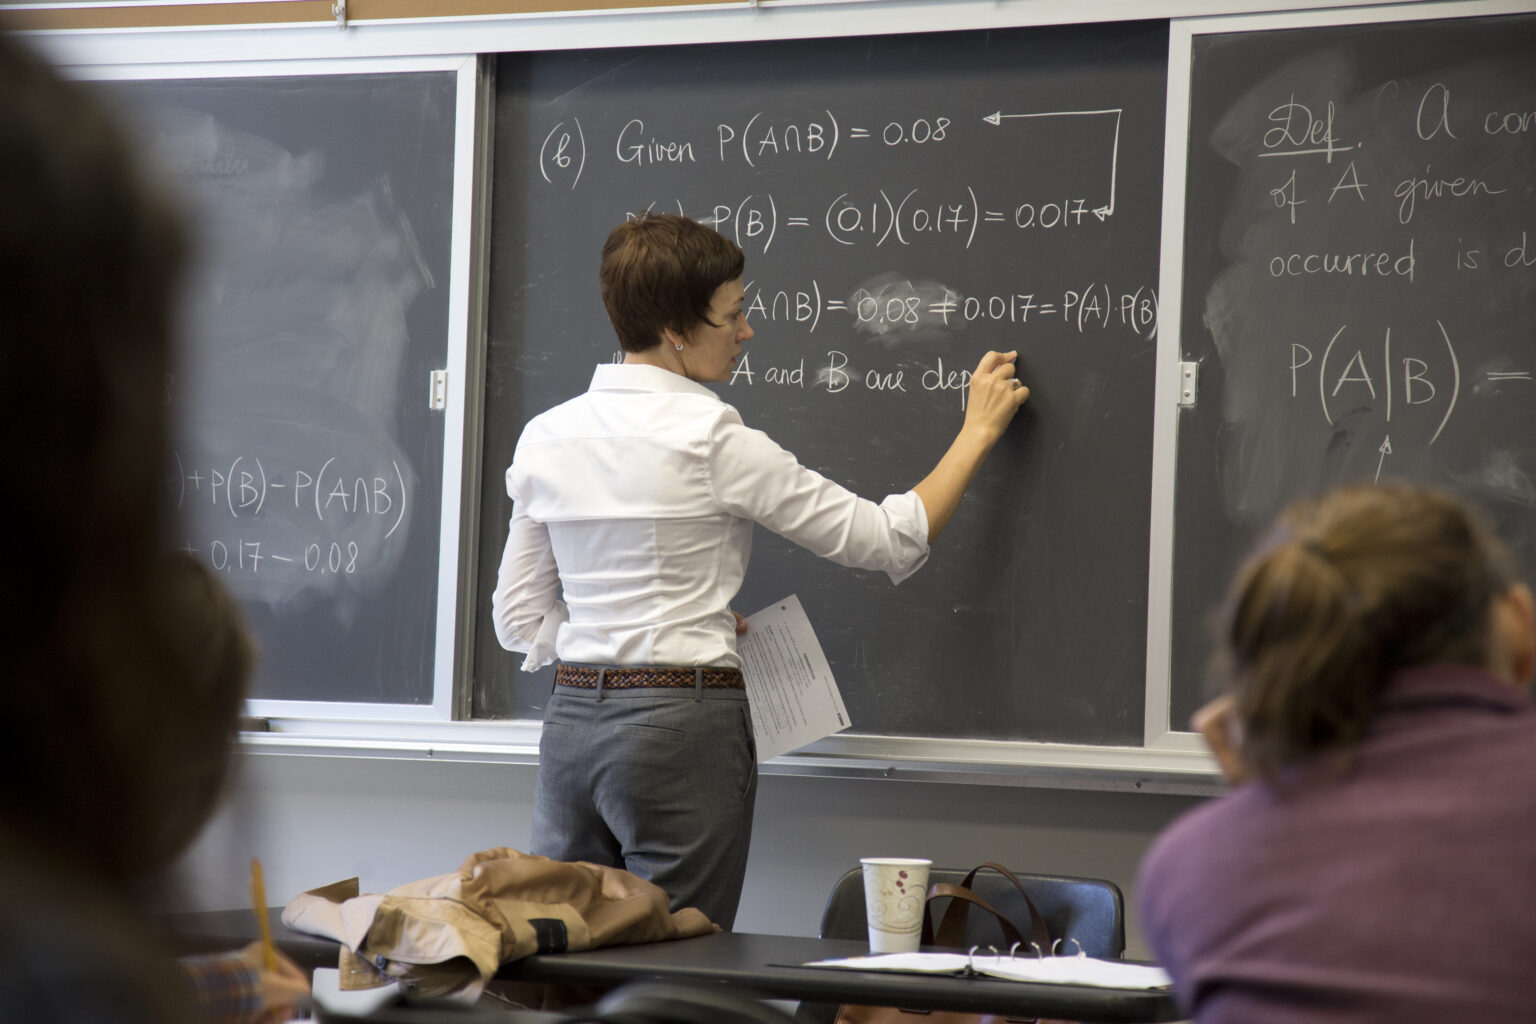 +P(B)-P(A∩B)
0,17-0,08
(b) Given P(A∩B) = 0.08
P(B) = (0.1)(0.17) = 0.017
A∩B) = 0.08 ≠ 0.017 = P(A)·P(B)
A and B are dep
Def. A con
of A given
occurred is d
P(A|B) =